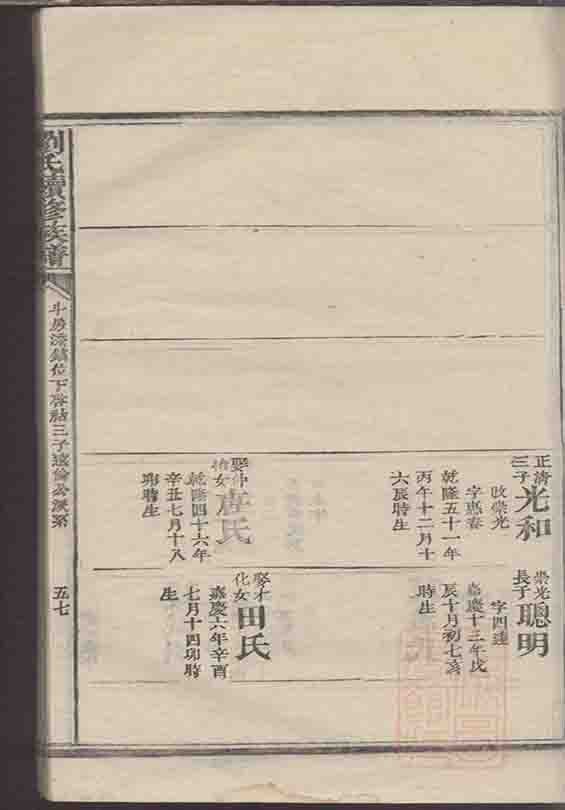 正濟
三子
光和
改榮光
字惠春
乾隆五十一年
丙午十二月十
六辰時生
娶仲
女唐氏
乾隆四十六年
辛丑七月十八
卯時生
榮光
長子
聰明
字四達
嘉慶十三年戊
辰十月初七亥
時生
娶才
化女
田氏
嘉慶六年辛酉
七月十四卯時
生
劉氏續修族譜
斗房濟鎮位下啓三子遠倫公派系
五七